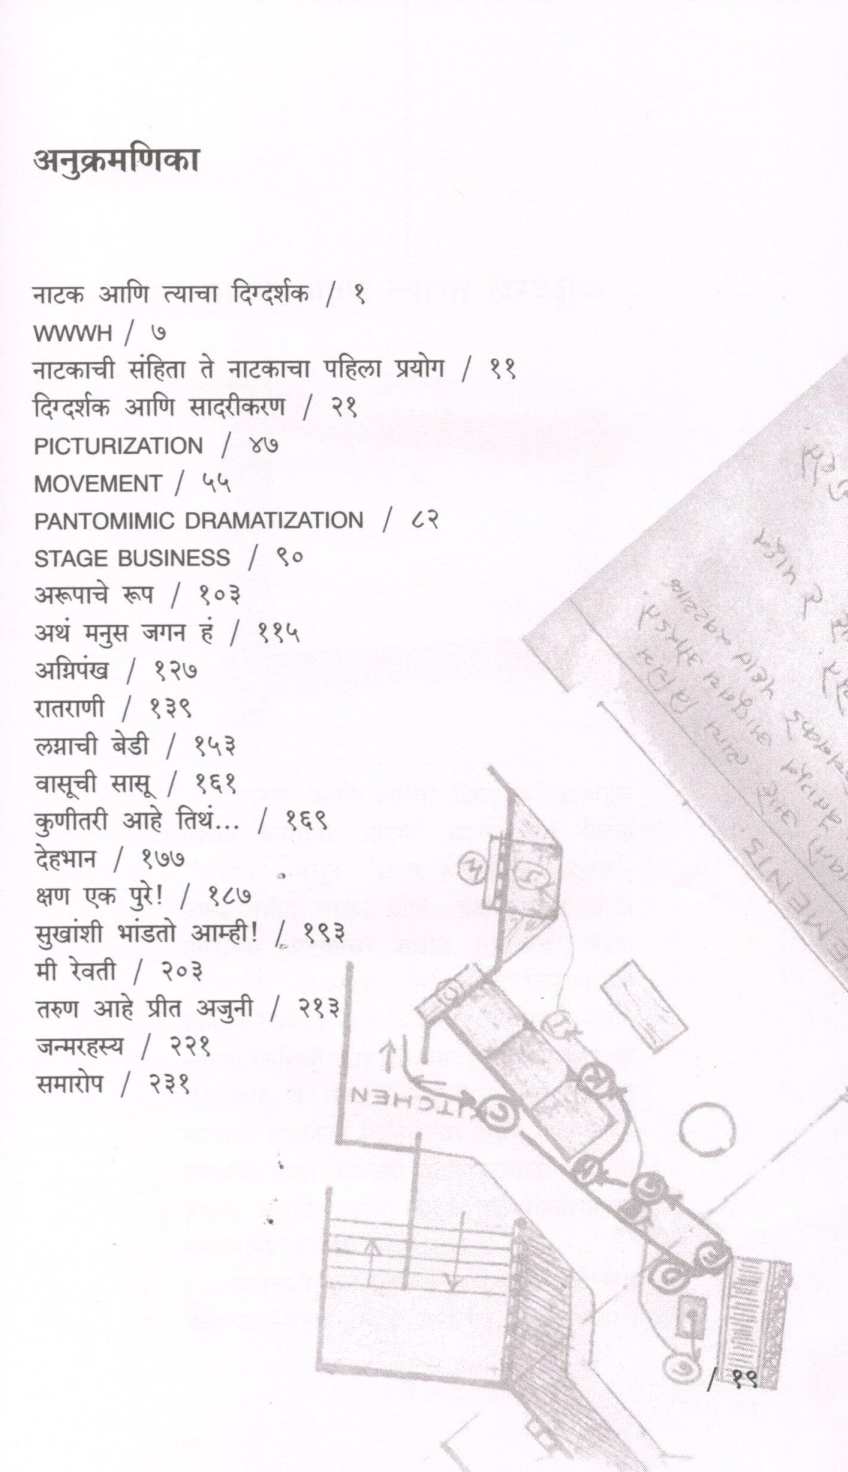 अनुक्रमणिका
नाटक आणि त्याचा दिग्दर्शक / १
WWWH / ७
नाटकाची संहिता ते नाटकाचा पहिला प्रयोग / ११
दिग्दर्शक आणि सादरीकरण / २१
PICTURIZATION / ४७
MOVEMENT / ५५
PANTOMIMIC DRAMATIZATION / ८२
STAGE BUSINESS / ९०
अरूपाचे रूप / १०३
अथं मनुस जगन हं / ११५
अग्निपंख / १२७
रातराणी / १३९
लग्नाची बेडी / १५३
वासूची सासू / १६१
कुणीतरी आहे तिथं... / १६९
देहभान / १७७
क्षण एक पुरे! / १८७
सुखांशी भांडतो आम्ही! / १९३
मी रेवती / २०३
तरुण आहे प्रीत अजुनी / २१३
जन्मरहस्य / २२१
समारोप / २३१
KITCHEN
/ १९